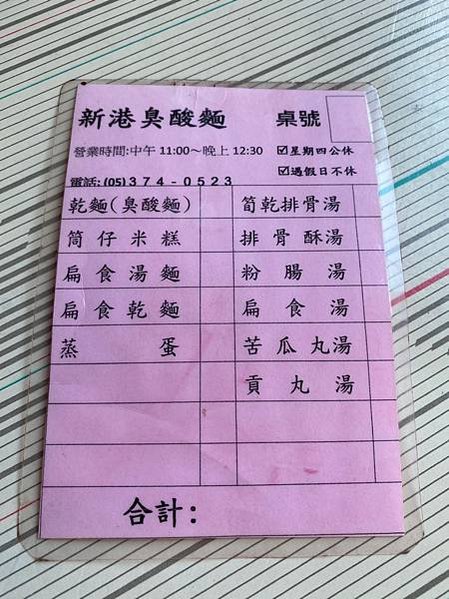 新港臭酸麵 桌號
營業時間:中午 11:00～晚上 12:30 ☑星期四公休
☑遇假日不休
電話: (05)374-0523
乾麵(臭酸麵) 筍乾排骨湯
筒仔米糕 排骨酥湯
扁食湯麵 粉腸湯
扁食乾麵 扁食湯
蒸蛋 苦瓜丸湯
貢丸湯
合計: